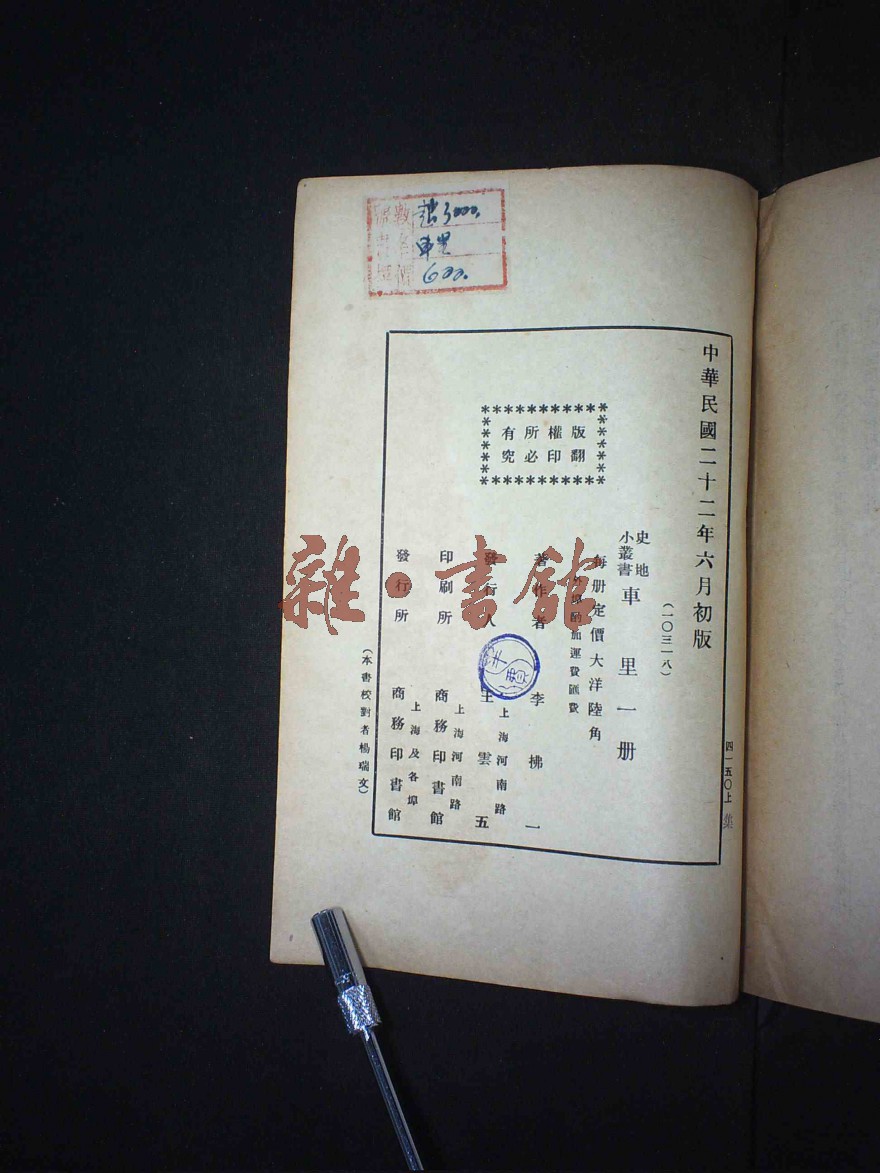 中華民國二十二年六月初版
(一〇三一八)
史地
小叢書
車里一册
每册定價大洋陸角
外埠酌加運費匯費
版權所有
翻印必究
著作者 李拂一
上海河南路
發行人 王雲五
上海河南路
印刷所 商務印書館
上海及各埠
發行所 商務印書館
(本書校對者楊瑞文)
四一五〇上
3000.
600.
雜·書館